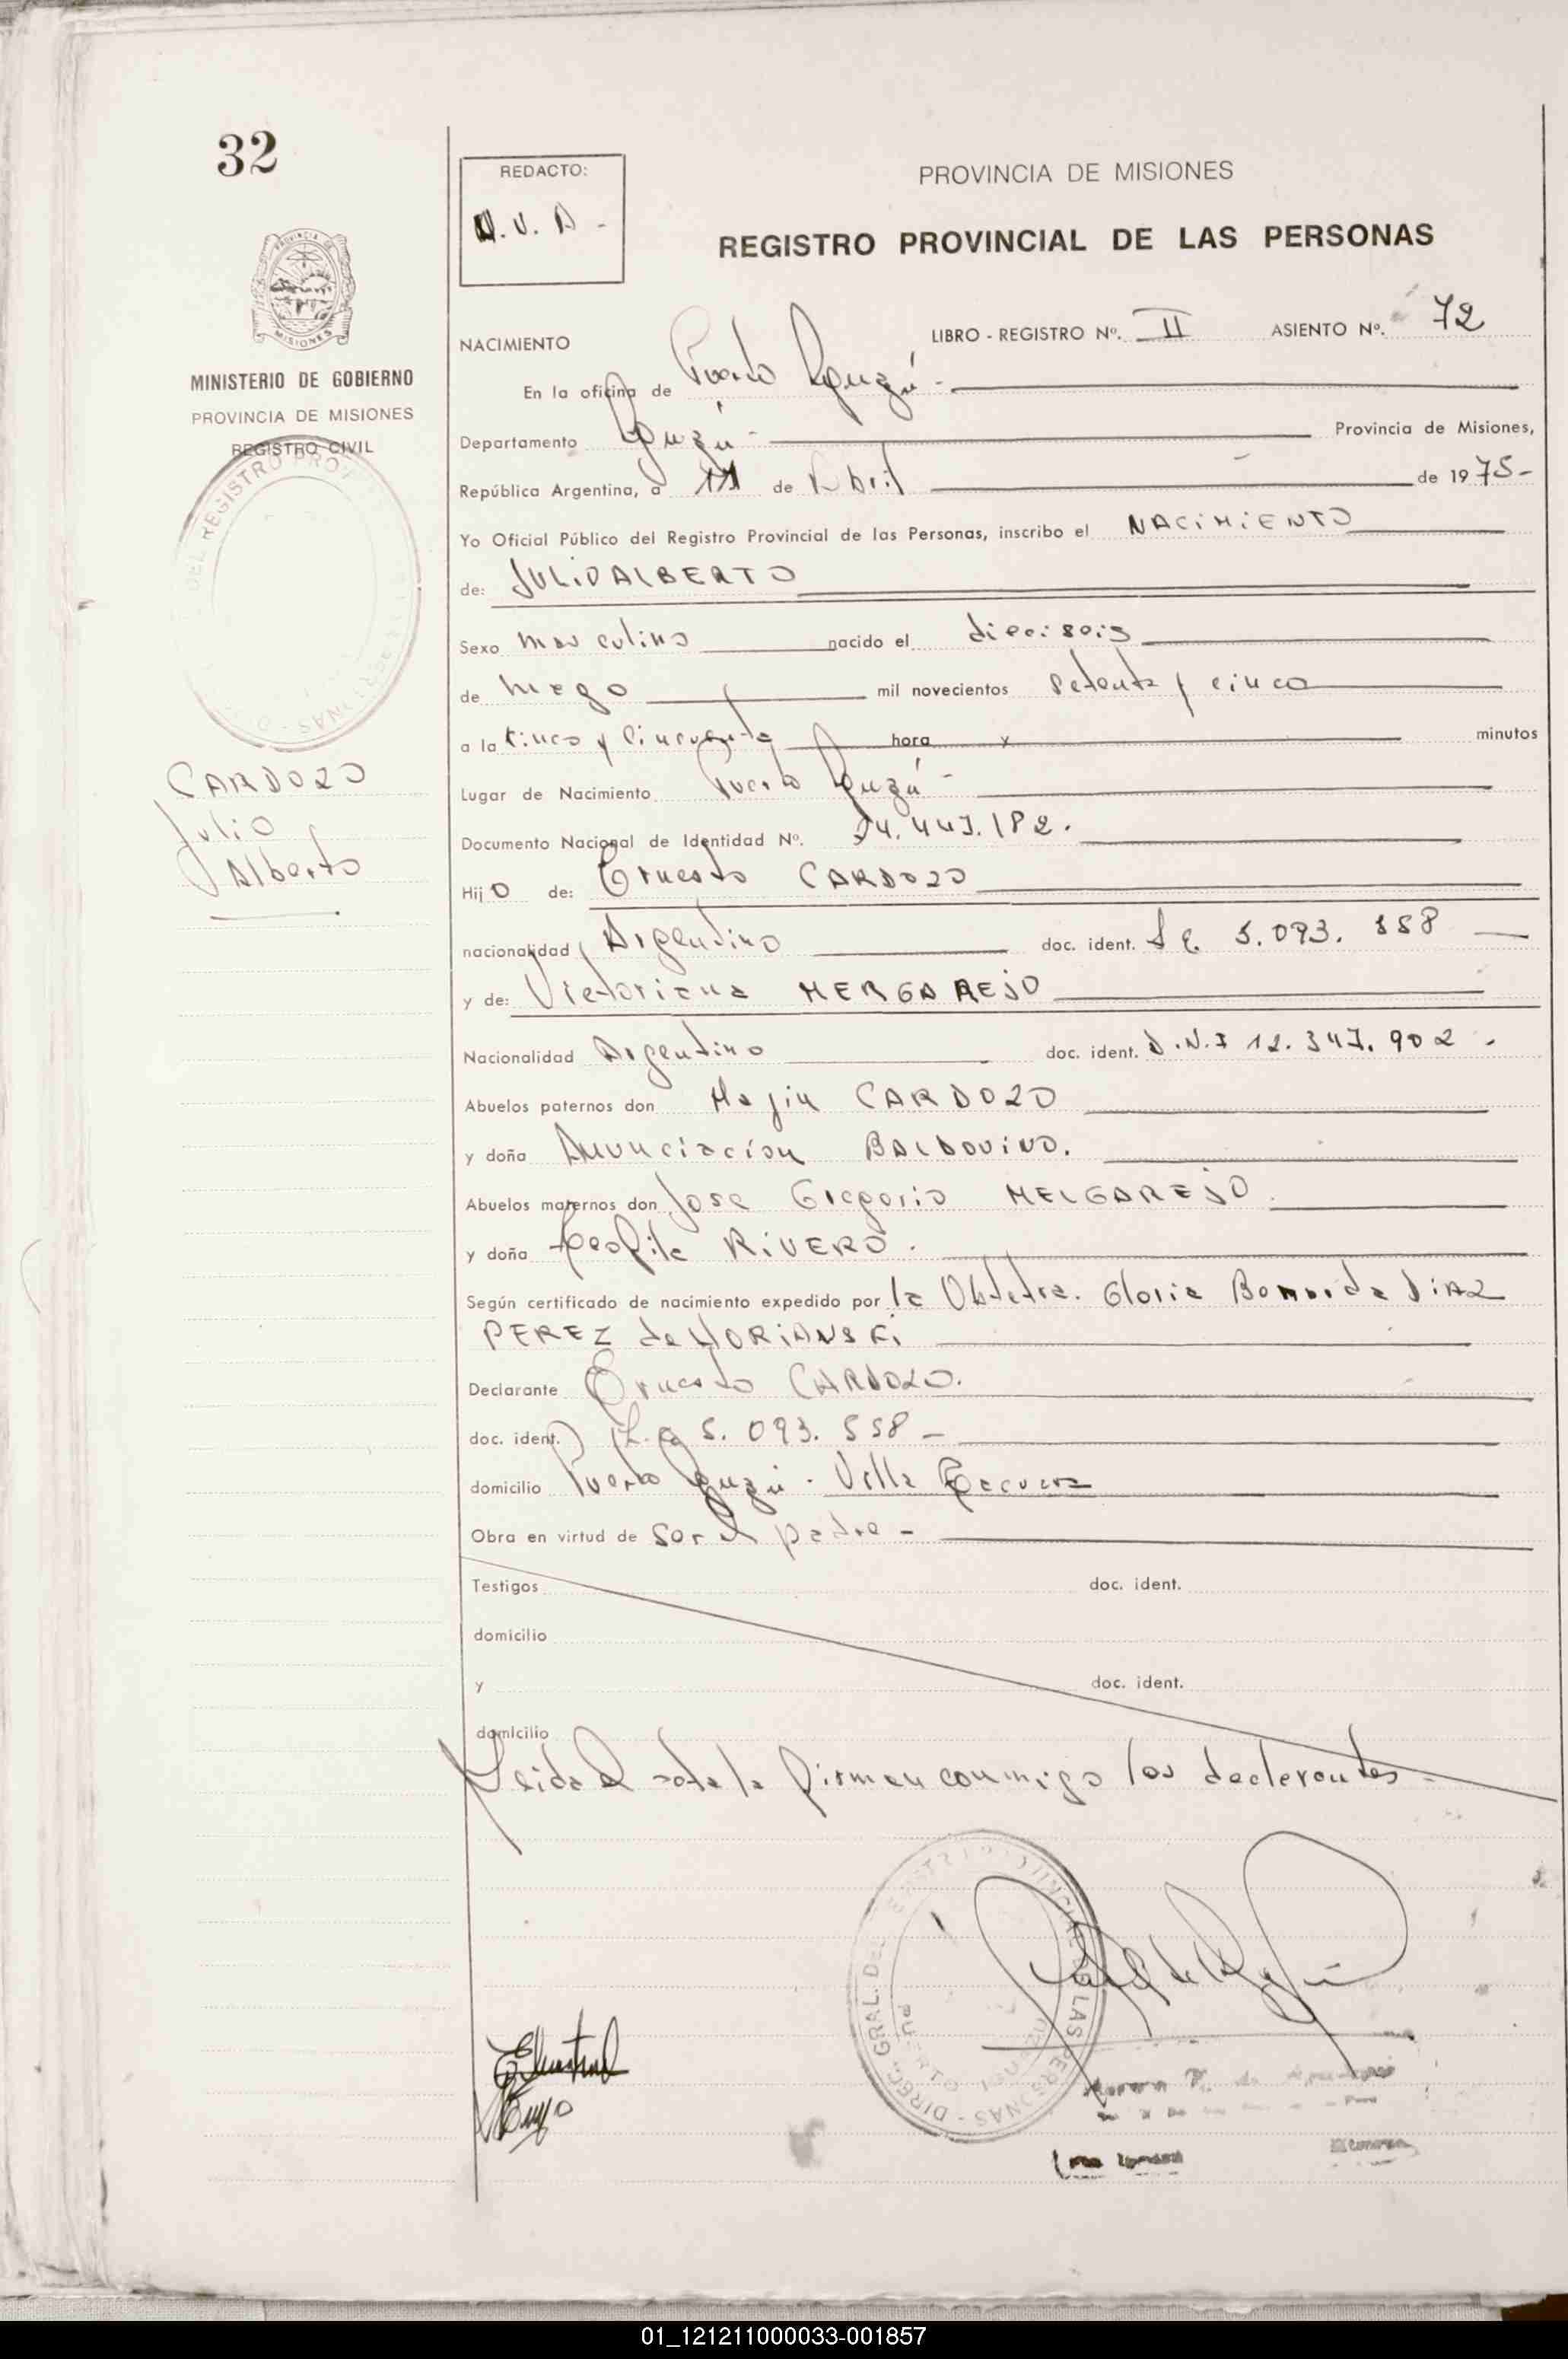 32
REDACTO:
PROVINCIA DE MISIONES
REGISTRO PROVINCIAL DE LAS PERSONAS
MINISTERIO DE GOBIERNO
PROVINCIA DE MISIONES
REGISTRO CIVIL
CARDOZO
Julio
Alberto
NACIMIENTO LIBRO - REGISTRO Nº. II ASIENTO Nº. 72
En la oficina de Puerto Iguazú -
Departamento Iguazú - Provincia de Misiones,
República Argentina, a de Abril de 1975-
Yo Oficial Público del Registro Provincial de las Personas, inscribo el NACIMIENTO
de: JULIO ALBERTO
Sexo masculino nacido el dieciseis
de mil novecientos setenta y cinco
a la cinco y cincuenta hora y minutos
Lugar de Nacimiento Puerto Iguazú -
Documento Nacional de Identidad Nº.
Hijo de: Ernesto CARDOZO
nacionalidad Argentino doc. ident.
y de: Victoriana MERGAREJO
Nacionalidad Argentino doc. ident. D.N.I 12.347.902 -
Abuelos paternos don CARDOZO
y doña Anunciacion BALDOVINO.
Abuelos maternos don Jose Gregorio MELGAREJO
y doña Teofila RIVERO.
Según certificado de nacimiento expedido por la Obstetra. Gloria DIAZ
PEREZ de
Declarante Ernesto CARDOZO.
doc. ident. 5.093.558 -
domicilio Puerto Iguazú - Villa
Obra en virtud de ser el padre -
Testigos doc. ident.
domicilio
y doc. ident.
domicilio
Leida el acta la firman conmigo los declarantes -
DIREC. GRAL. DEL REGISTRO PROVINCIAL DE LAS PERSONAS
PUERTO IGUAZU
01_121211000033-001857